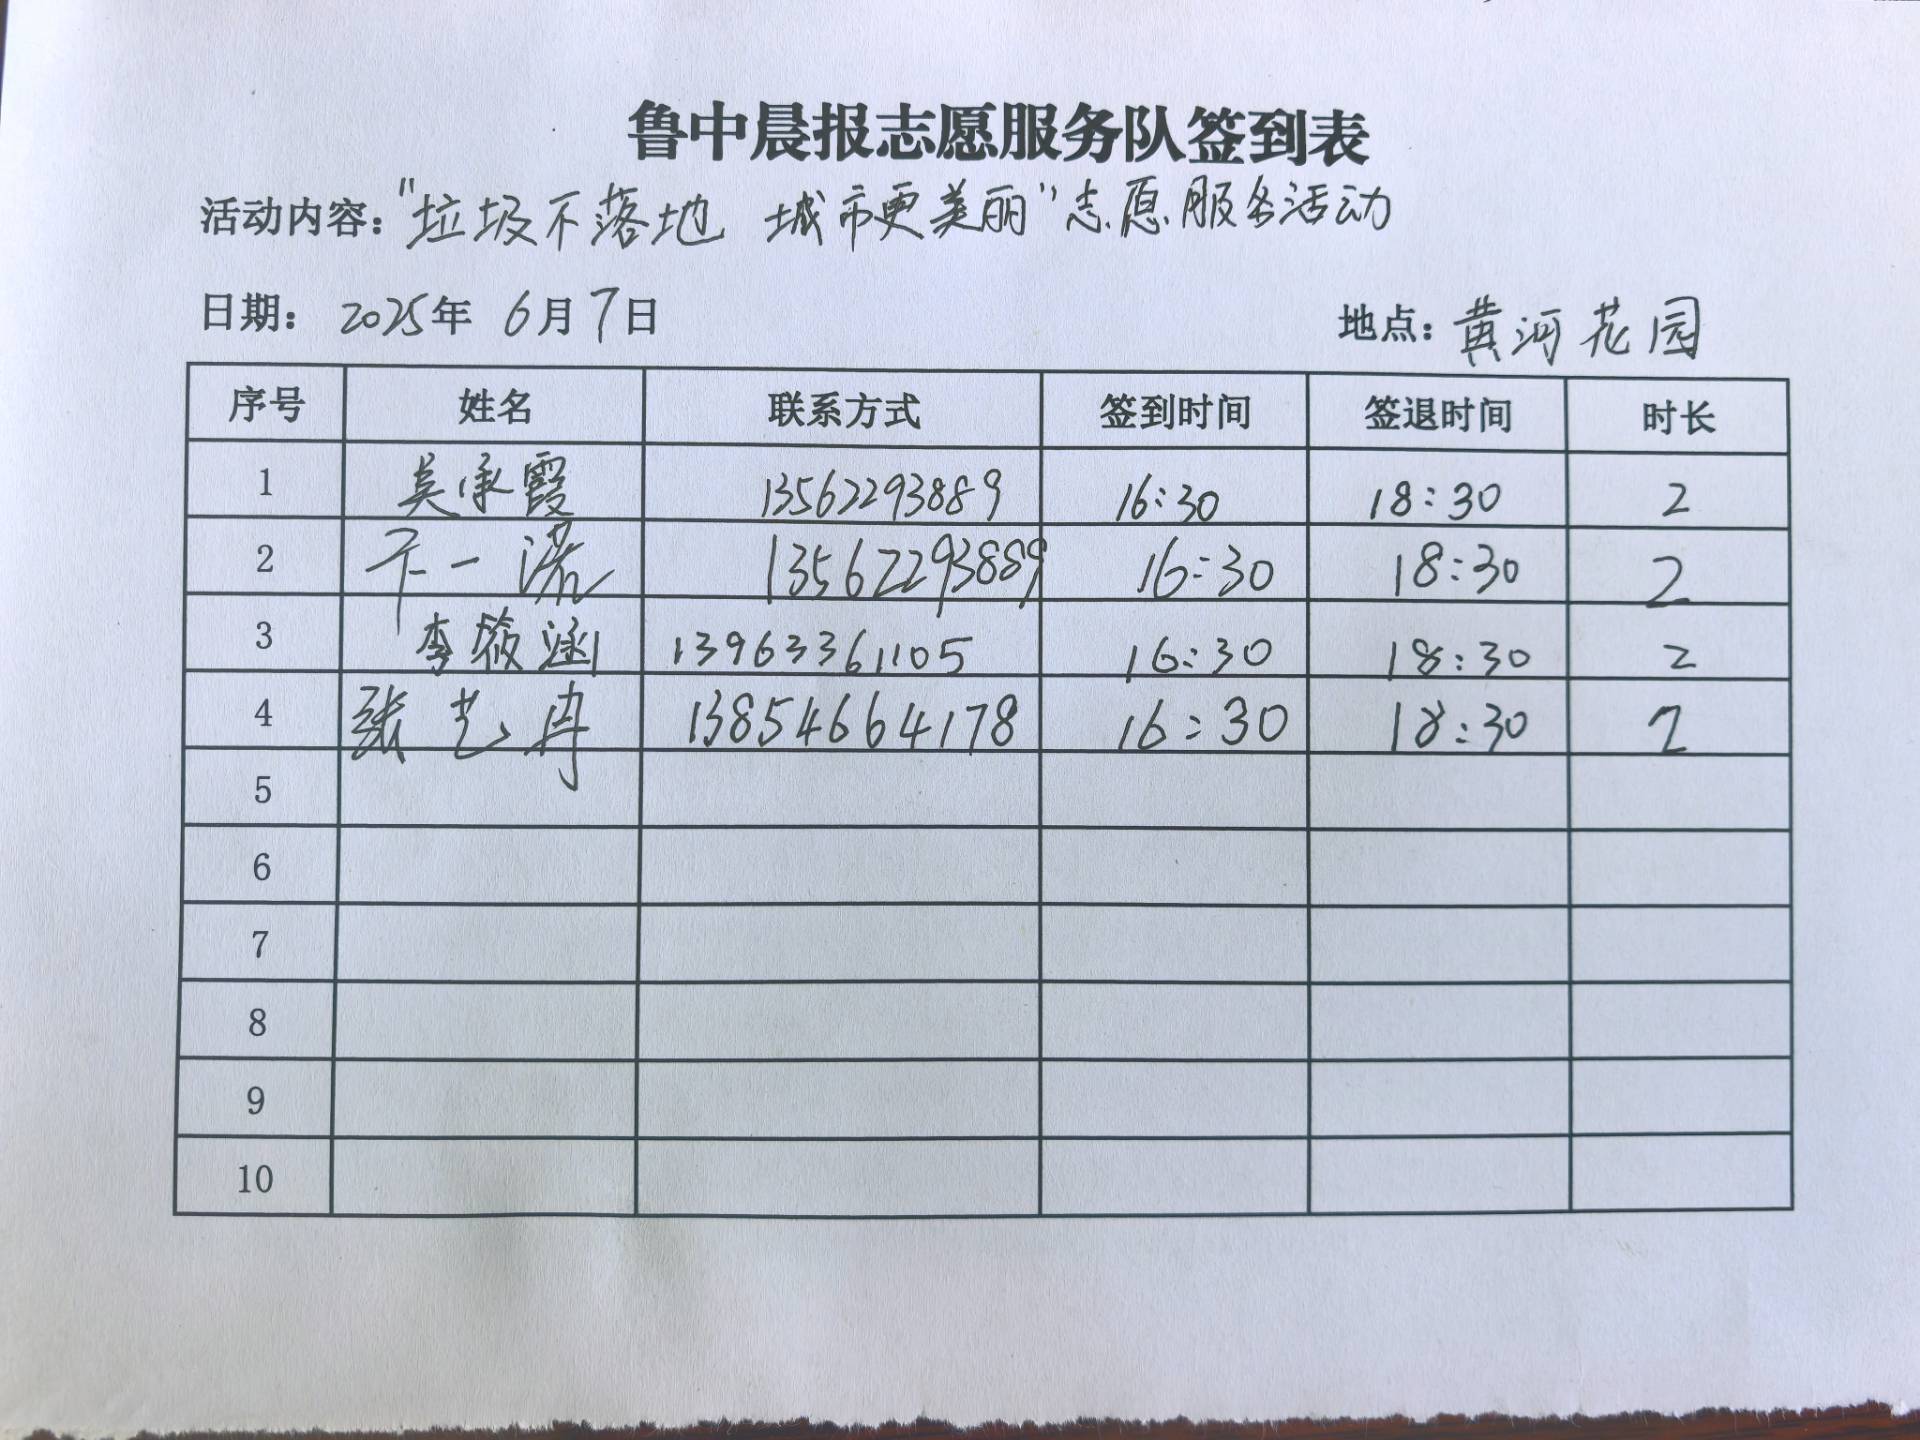 鲁中晨报志愿服务队签到表
活动内容：“垃圾不落地 城市更美丽”志愿服务活动
日期： 2025年 6月7日 地点：黄河花园
序号 姓名 联系方式 签到时间 签退时间 时长
1 吴承霞 13562293889 16:30 18:30 2
2 卞一 13562293889 16:30 18:30 2
3 李筱涵 13963361105 16:30 18:30 2
4 张艺冉 13854664178 16:30 18:30 2
5
6
7
8
9
10